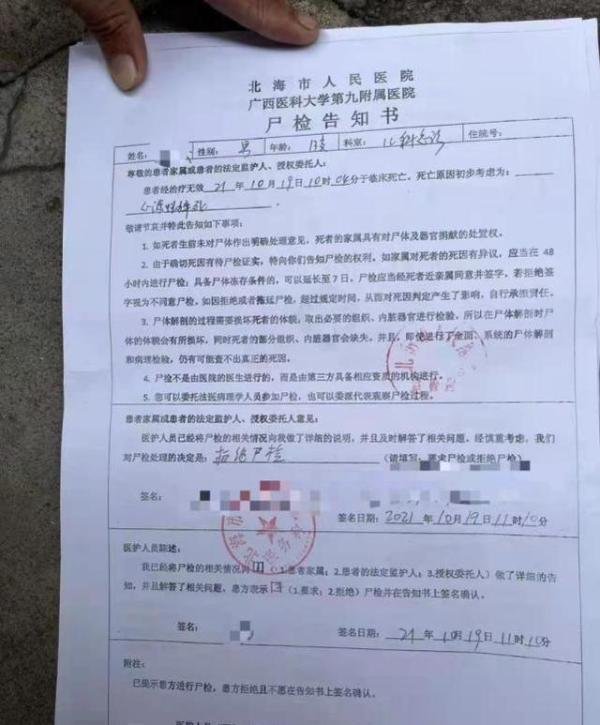 北海市人民医院
广西医科大学第九附属医院
尸检告知书
姓名: 性别: 男 年龄: 科室: 儿科急诊 住院号:
尊敬的患者家属或患者的法定监护人、授权委托人:
患者经治疗无效 21 年 10 月 19 日 10 时 04 分于临床死亡, 死亡原因初步考虑为:
心源性猝死
敬请节哀并特此告知如下事项:
1. 如死者生前未对尸体作出明确处理意见, 死者的家属具有对尸体及器官捐献的处置权。
2. 由于确切死因有待尸检证实, 特向你们告知尸检的权利。如家属对死者的死因有异议, 应当在 48
小时内进行尸检; 具备尸体冻存条件的, 可以延长至 7 日。尸检应当经死者近亲属同意并签字, 若拒绝签
字视为不同意尸检, 如因拒绝或者拖延尸检, 超过规定时间, 从而对死因判定产生了影响, 自行承担责任。
3. 尸体解剖的过程需要损坏死者的体貌, 取出必要的组织、内脏器官进行检验, 所以在尸体解剖时尸
体的体貌会有所损坏, 同时死者的部分组织、内脏器官会缺失。并且, 即使进行了全面、系统的尸体解剖
和病理检验, 仍有可能查不出真正的死因。
4. 尸检不是由医院的医生进行的, 而是由第三方具备相应资质的机构进行。
5. 您可以委托法医病理学人员参加尸检, 也可以委派代表观察尸检过程。
患者家属或患者的法定监护人、授权委托人意见:
医护人员已经将尸检的相关情况向我做了详细的说明, 并且及时解答了相关问题, 经慎重考虑, 我们
对尸检处理的决定是: 拒绝尸检 (请填写: 要求尸检或拒绝尸检)
签名:
签名日期: 2021 年 10 月 19 日 11 时 10 分
医护人员陈述:
我已经将尸检的相关情况向 1 (1.患者家属; 2.患者的法定监护人; 3.授权委托人) 做了详细的告
知, 并且解答了相关问题, 患方表示 (1.要求; 2.拒绝) 尸检并在告知书上签名确认。
签名: 签名日期: 21 年 10 月 19 日 11 时 10 分
附注:
已提示患方进行尸检, 患方拒绝且不愿在告知书上签名确认。
医护人员签名: